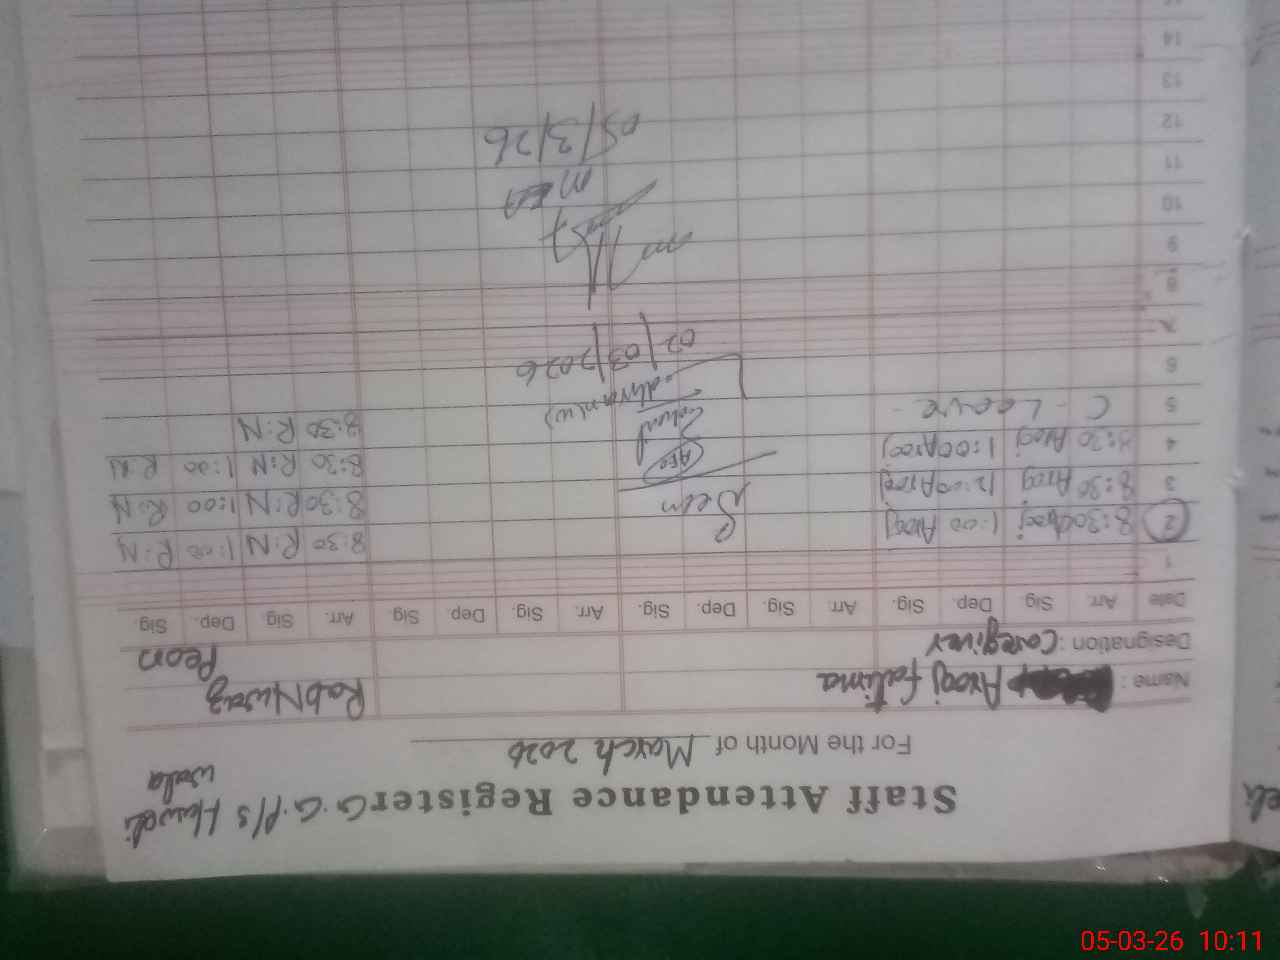 Staff Attendance Register G.G.P/S Haweli
wala
For the Month of March 2026
Name: Arooj fatima RabNwaz
Designation: Caregiver Peon
Date Arr. Sig Dep. Sig. Arr. Sig. Dep. Sig. Arr. Sig. Dep. Sig Arr. Sig Dep. Sig.
1
2 8:30 Arooj 1:00 Arooj 8:30 R:N 1:00 R:N
3 8:30 Arooj 12:00 Arooj 8:30 R:N 1:00 R:N
4 8:30 Arooj 1:00 Arooj 8:30 R:N 1:00 R:N
5 C - Leave - 8:30 R:N
Seen
AEO
02/03/2026
6
7
8
9
10
MEA
11
05/3/26
12
13
14
05-03-26 10:11